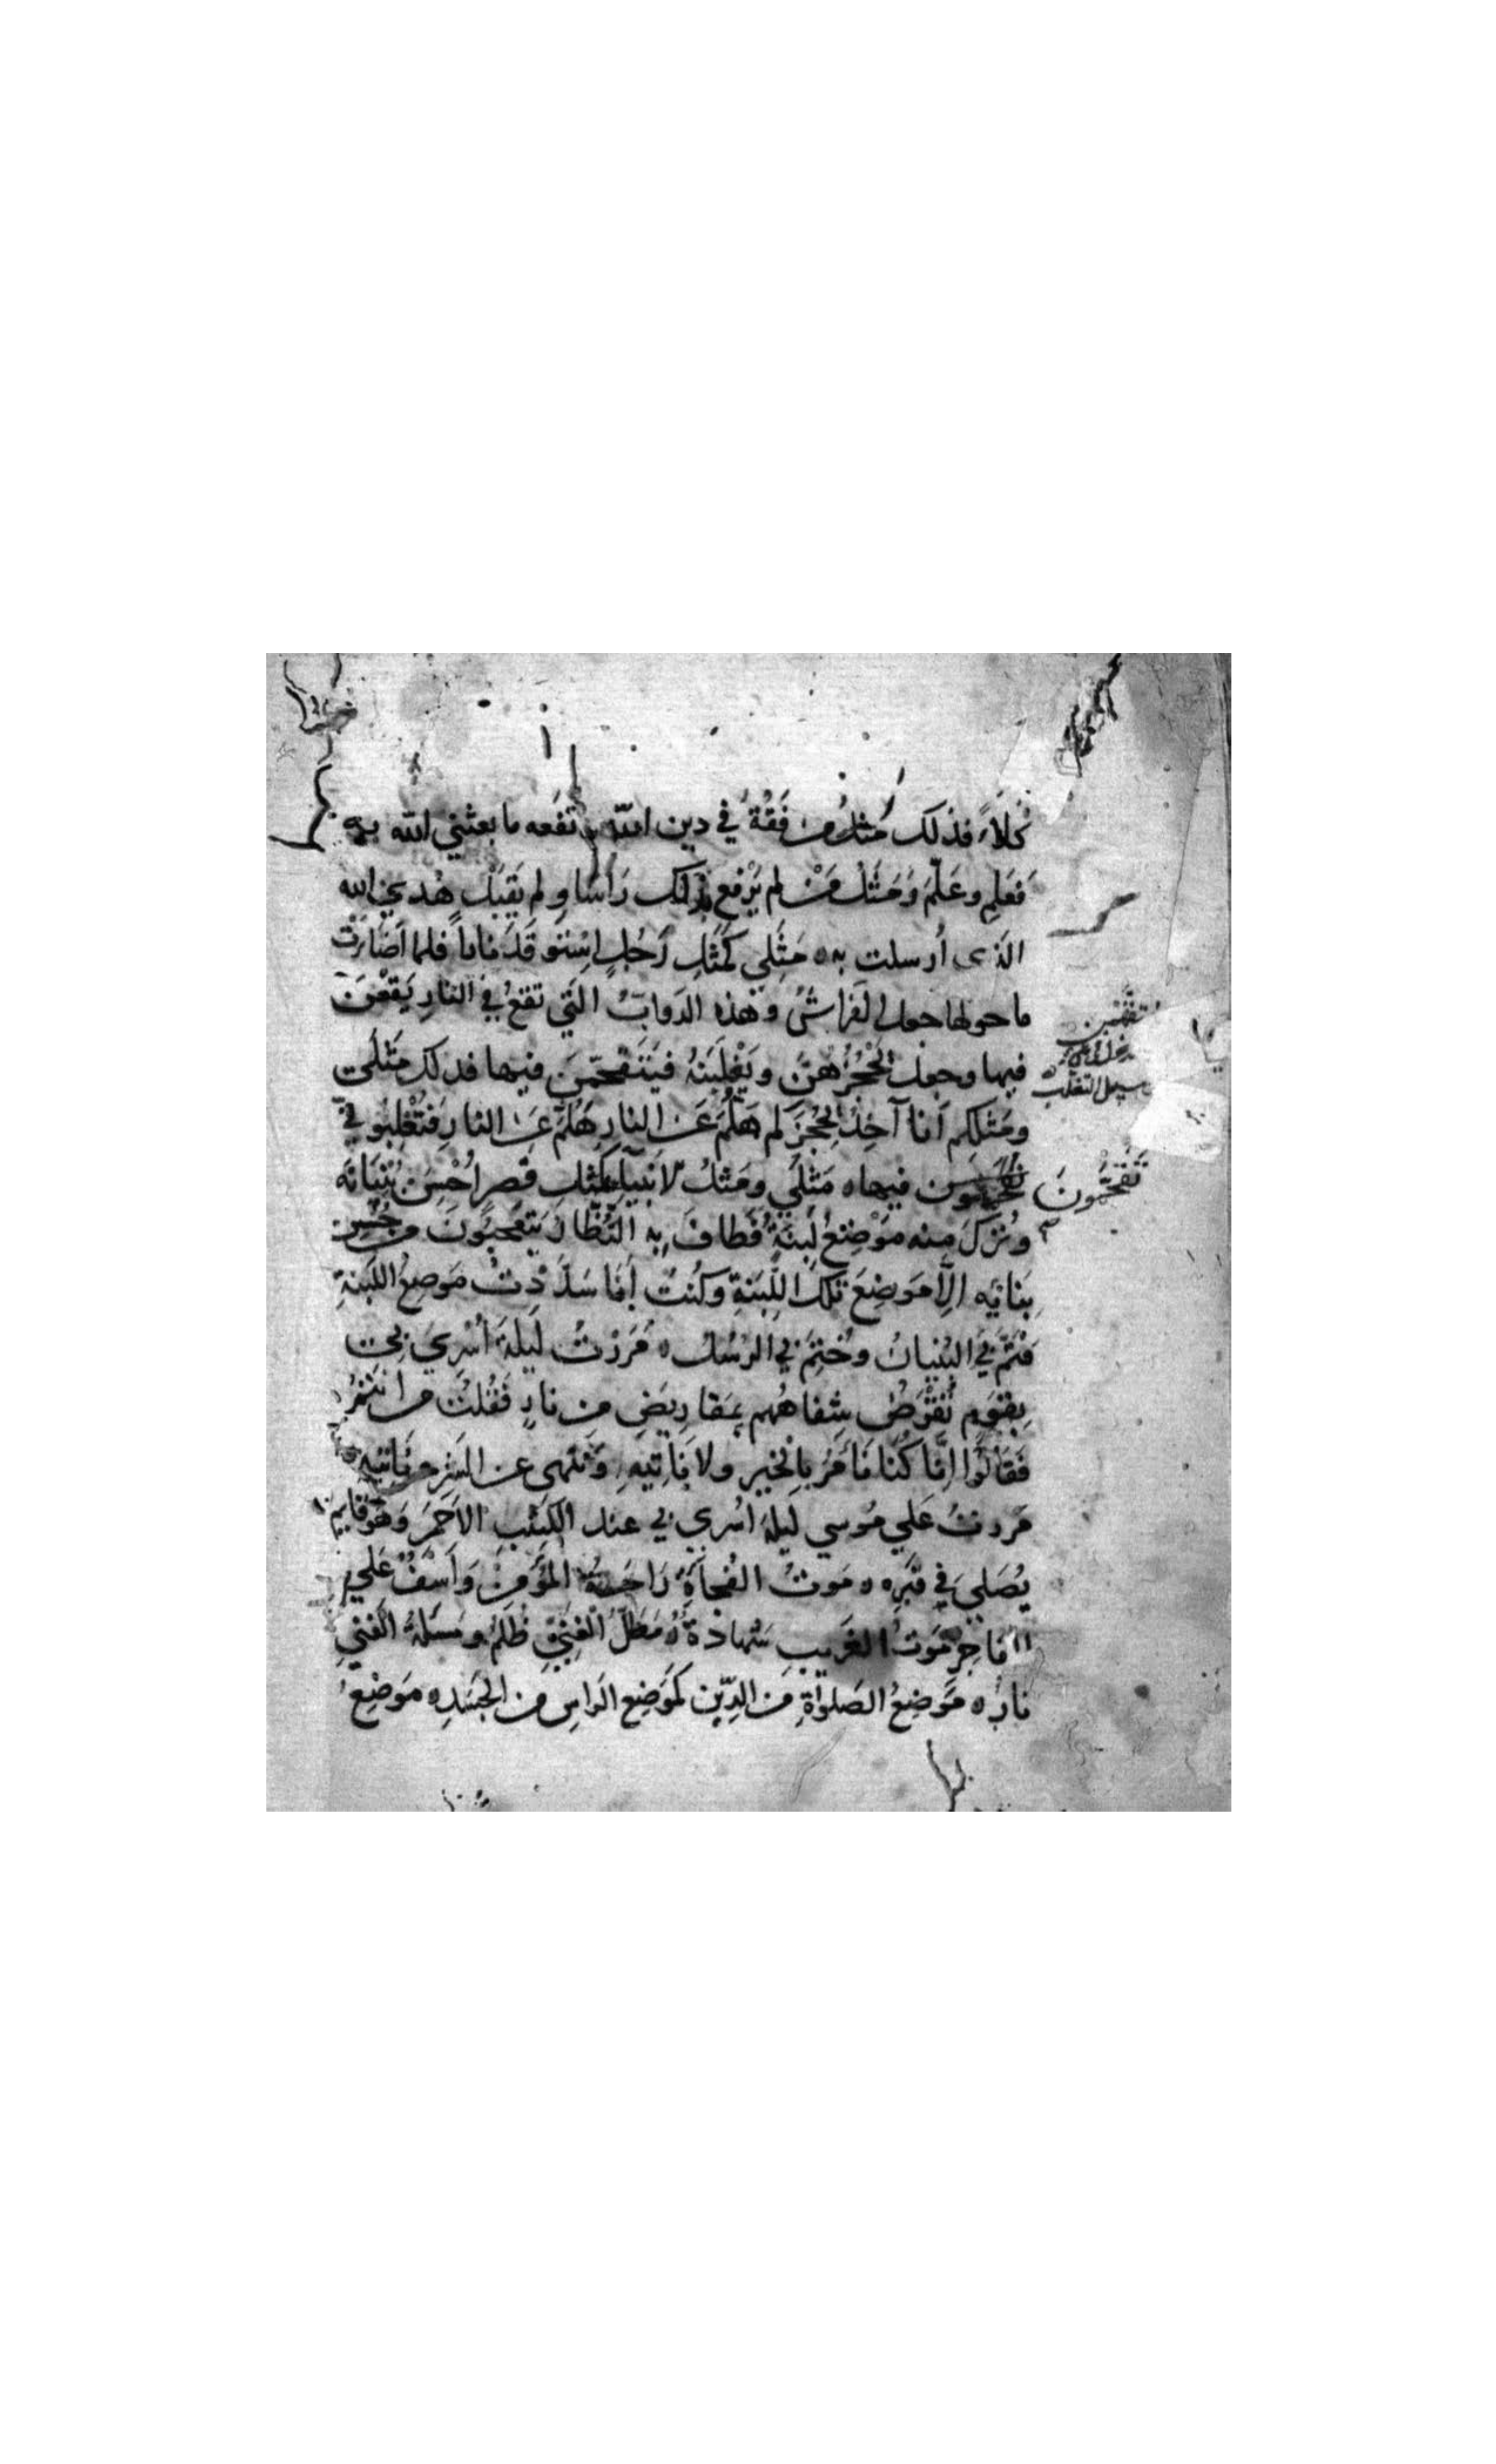 كَلَاءً فذلك مَثَلُ من فَقُهَ في دين الله و تفعه ما بعثني الله به
فَعَلِم وعَلّمَ وَمَثَلُ مَنْ لم يَرْفع بذلك رَاسًا و لم يَقبَلْ هُدي الله
الذي اُرسلت به ه مَثَلِي كَمَثَلِ رَجُلٍ اِسْتَوقَدَ نارًا فلما اَضَارَت
ما حولها جعل الفَراشُ وَهذه الدَوابّ الَتي تقعُ في النارِ يَقَعْنَ
فيها وجعل يَحْجُزُهنّ وَيَغْلِبْنَهُ فيَتَقَحّمنَ فيها فذلك مَثَلي
ومَثَلكم اَنا آخِذٌ بِحُجَزِكم هَلُمَّ عَن النارِ هَلُمّ عَن النارِ فتَغْلِبُوني
تَقَحَّمُونَ فيها ه مَثَلي ومَثلُ الانبيآءِ كمَثلِ قَصرٍ اُحْسِنَ بُنيَانُه
وتُرِكَ منه مَوْضِعُ لَبِنَةٍ فطافَ به النُّظَّارُ يَتَعَجبُونَ من حُسنِ
بَنَائِه اِلَّا مَوضِعَ تلك اللَّبِنَةِ وكُنتُ اَنَا سَدَدْتُ مَوضِعَ اللَبَنَةِ
فتُمّ بيَ البُنيانُ وخُتِمَ بي الرُسُلُ ه مَرَرْتُ لَيلَةَ اُسْرِيَ بي
بِقَومٍ تُقْرَضُ شِفاهُهم بِمَقَارِيضَ من نارٍ فَقُلتُ من
فَقَالُوا اِنَّا كُنّا نَأمُرُ بِالخيرِ ولا نَأتِيهِ وَننهى عن الشَرِّ ونَاتيه
مَررتُ عَلي مُوسي ليلةَ اُسْري بي عند الكَثيبِ الاَحمَرِ وَهوَ قايمٌ
يُصَلي في قَبرِه ه مَوتُ الفُجأةِ رَاحَةُ المُؤمِنِ وَاَسَفٌ عَلي
الفاجِرِ مَوتُ الغَريبِ شَهادَةٌ ه مَطلُ الغَنِيِّ ظُلمٌ ومَسئَلةُ الغَنيّ
نارٌ ه مَوضِعُ الصَلوٰةِ مِنَ الدِّينِ كمَوضِعِ الرَاسِ مِن الجسَدِ ه مَوضِعُ
سبيل التغلب
تَقَحَّمُونَ